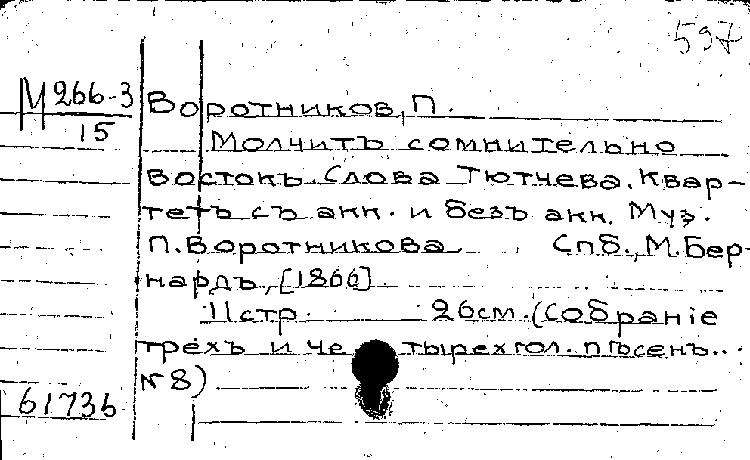 597
М 266-3
15
Воротников, П.
Молчитъ сомнительно
Востокъ. Слова Тютчева. Квар-
тетъ съ акк. и безъ акк. Муз.
П. Воротникова. Спб., М. Бер-
нардъ, [1866]
11 стр. 26 см. (Собраніе
трехъ и четырехгол. пѣсенъ...
№ 8)
61736